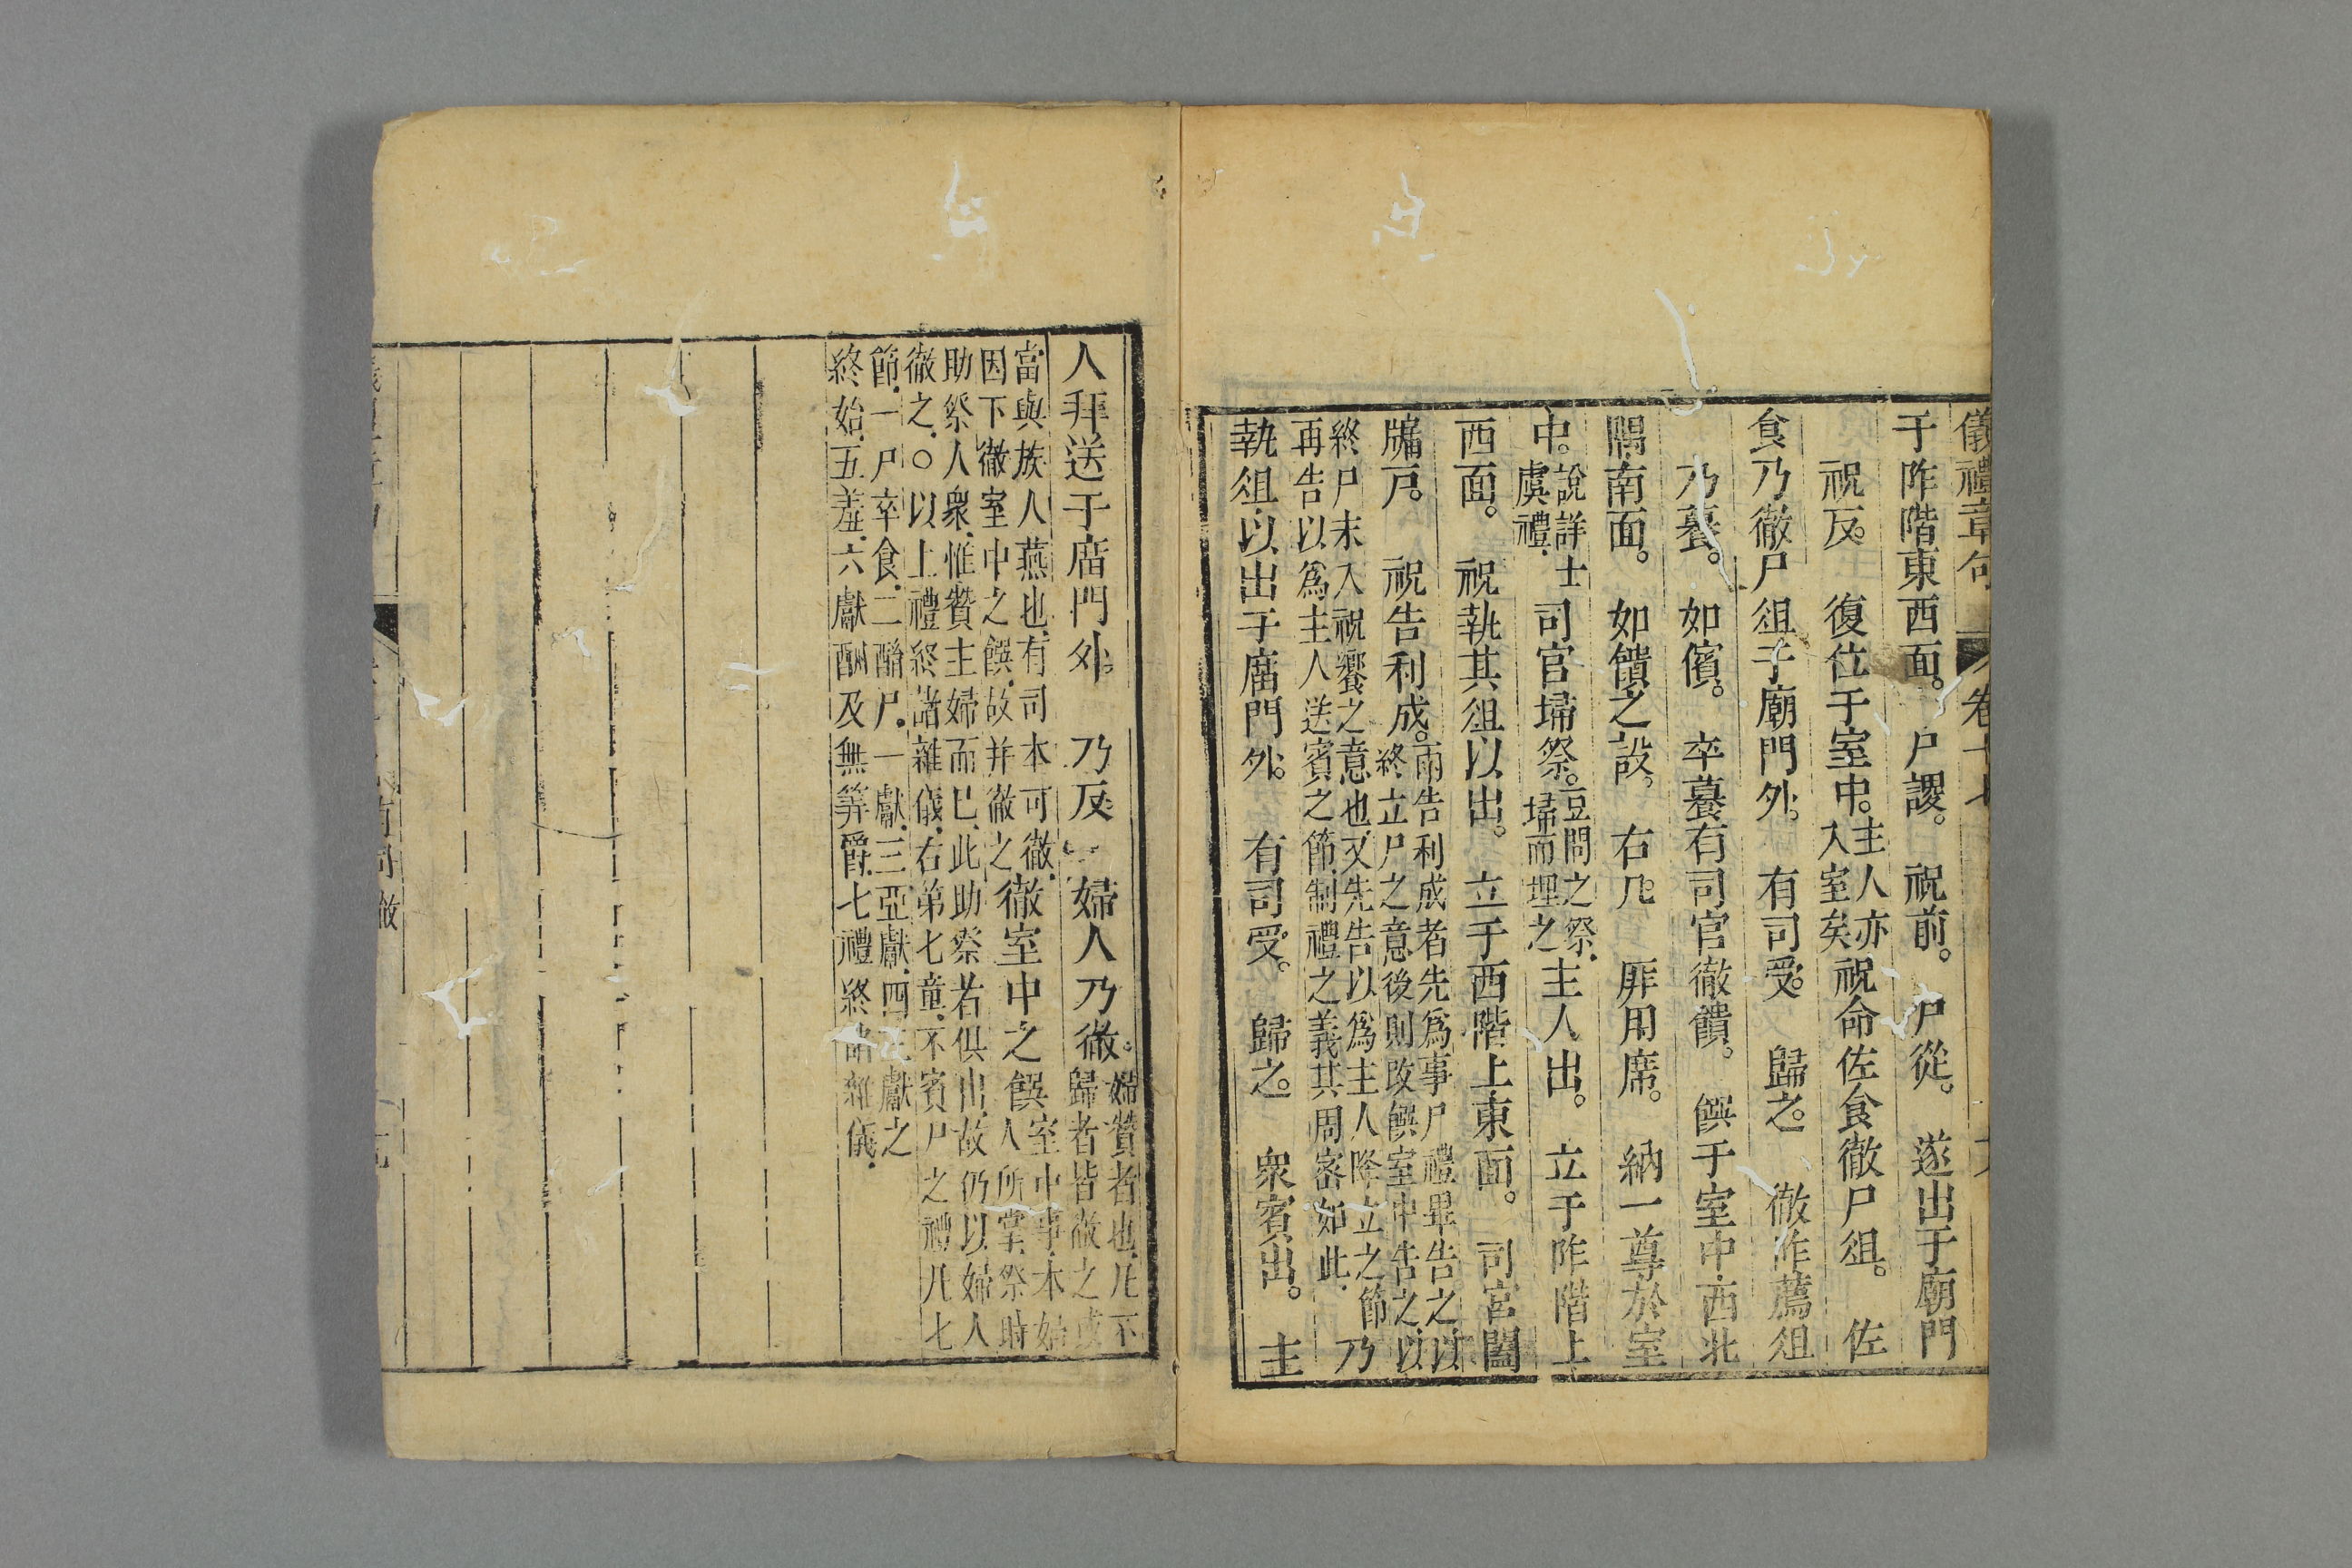 儀禮章句 卷十七
于阼階東西面。 尸謖。 祝前。 尸從。 遂出于廟門
祝反。 復位于室中。主人亦入室矣祝命佐食徹尸俎。 佐
食乃徹尸俎于廟門外。 有司受。 歸之。 徹阼薦俎
乃餕。 如儐。 卒餕有司官徹饋。 饌于室中西北
隅南面。 如饋之設。 右几。 厞用席。 納一尊於室
中。說詳士虞禮。 司官埽祭。豆閒之祭。埽而埋之主人出。 立于阼階上
西面。 祝執其俎以出。 立于西階上東面。 司宮闔
牖戸。 祝告利成。兩告利成者先爲事尸禮畢告之以終立尸之意後則改饌室中告之以
終尸未入祝饗之意也又先告以爲主人降立之節
再告以爲主人送賓之節制禮之義其周宻如此。 乃
執俎以出于廟門外。 有司受。 歸之。 衆賓出。 主
人拜送于庿門外。 乃反 婦人乃徹。婦贊者也凡不歸者皆徹之或
當與族人燕也有司本可徹。
因下徹室中之饌。故并徹之徹室中之饌室中事本婦人所掌祭時
助祭人衆惟贊主婦而已此助祭若俱出故仍以婦人
徹之。○以上禮終諸雜儀右第七章不賓尸之禮凡七
節一尸卒食二酳尸。一獻三亞獻四三獻之
終始五羞六獻酬及無筭爵七禮終諸雜儀。
有司徹